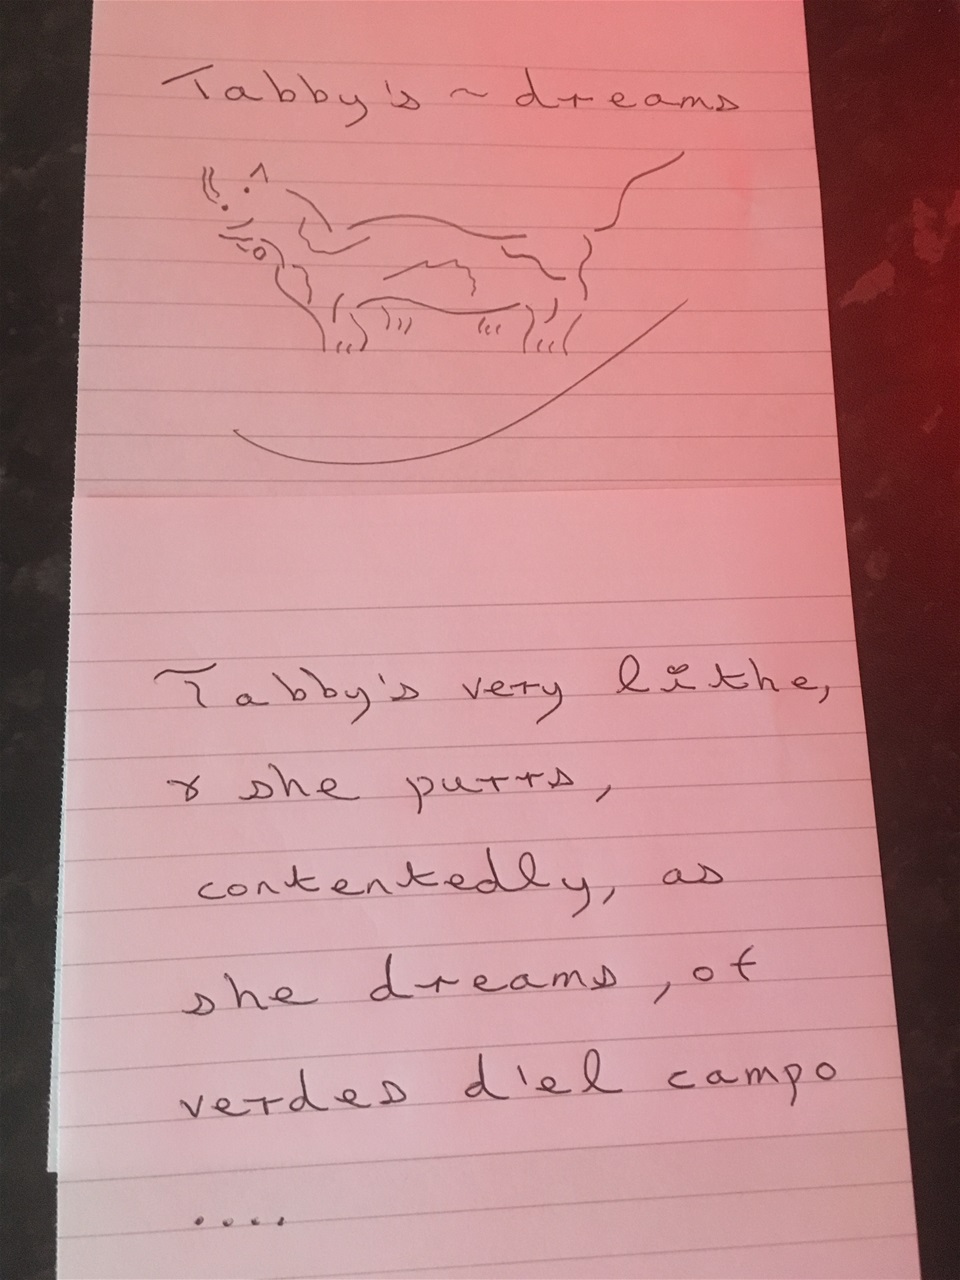 Tabby's ~ dreams
Tabby's very lithe,
& she purrs,
contentedly, as
she dreams, of
verdes d'el campo
....